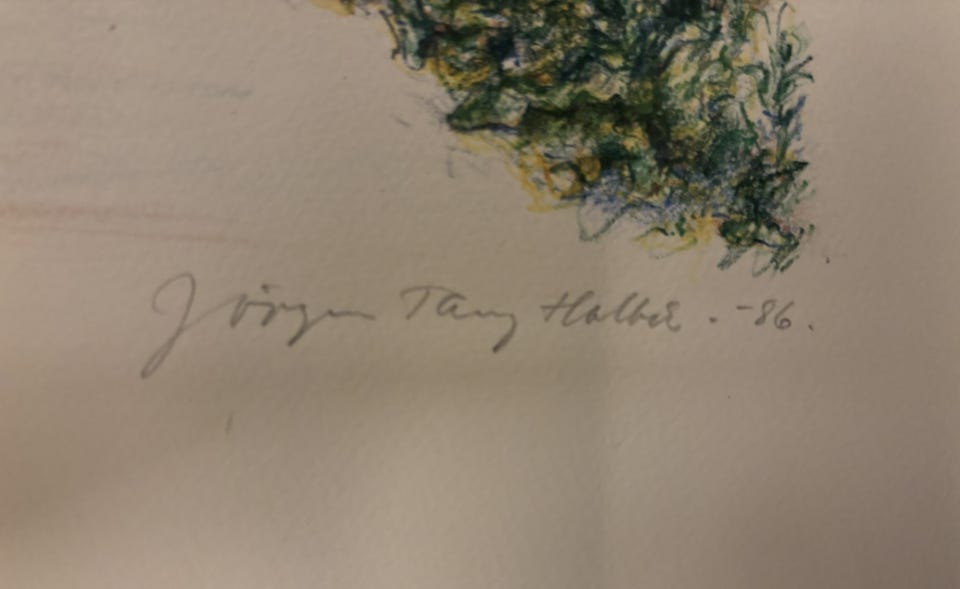 Jörgen Tang Holbek. -86.